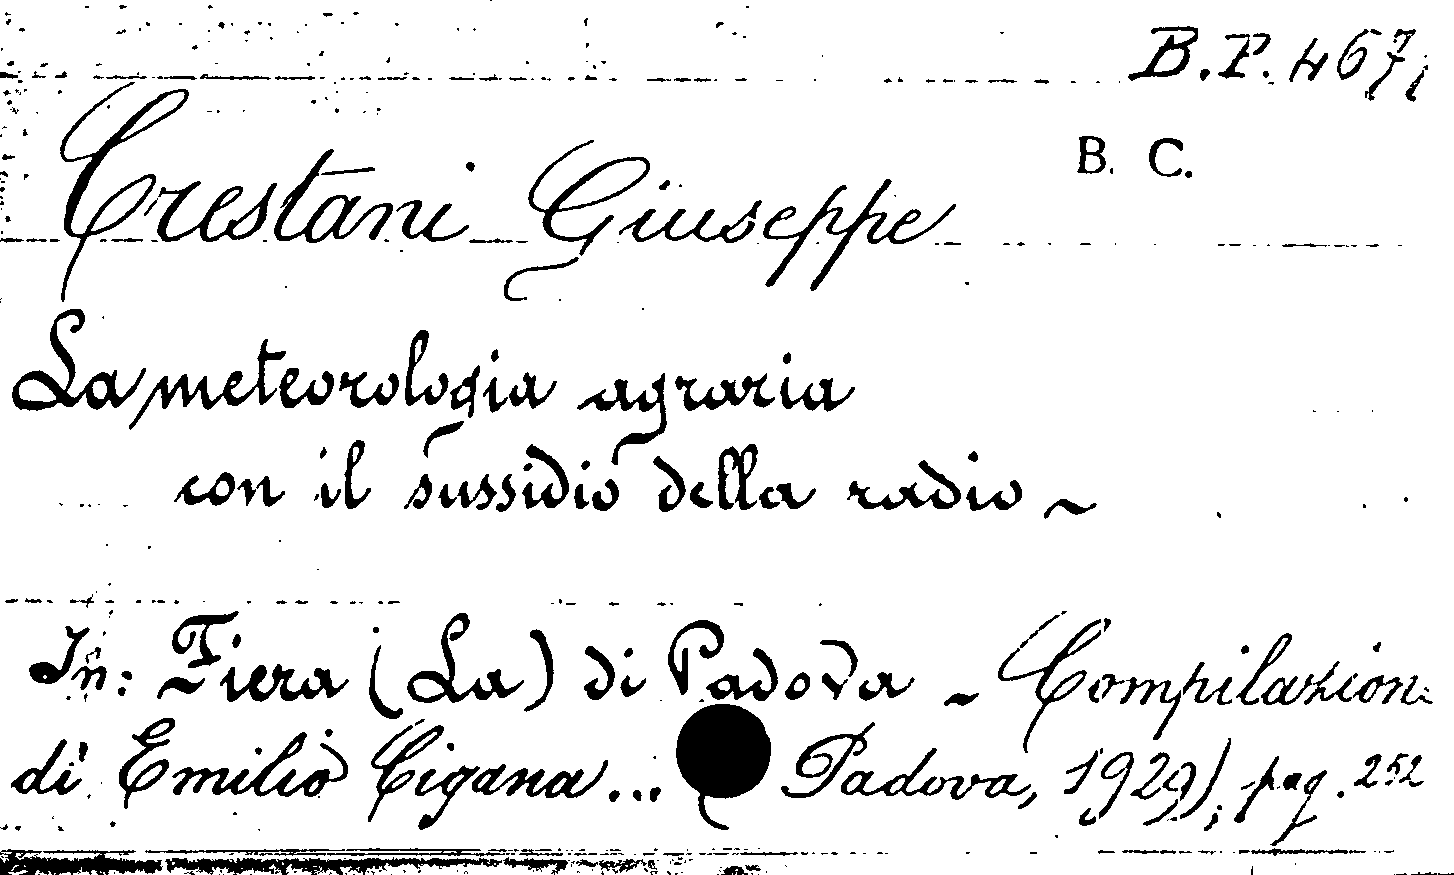 B.P. 467,
B. C.
Crestani Giuseppe
La meteorologia agraria
con il sussidio della radio -
In: Fiera (La) di Padova - Compilazione
di Emilio Cigana... Padova, 1929); pag. 252